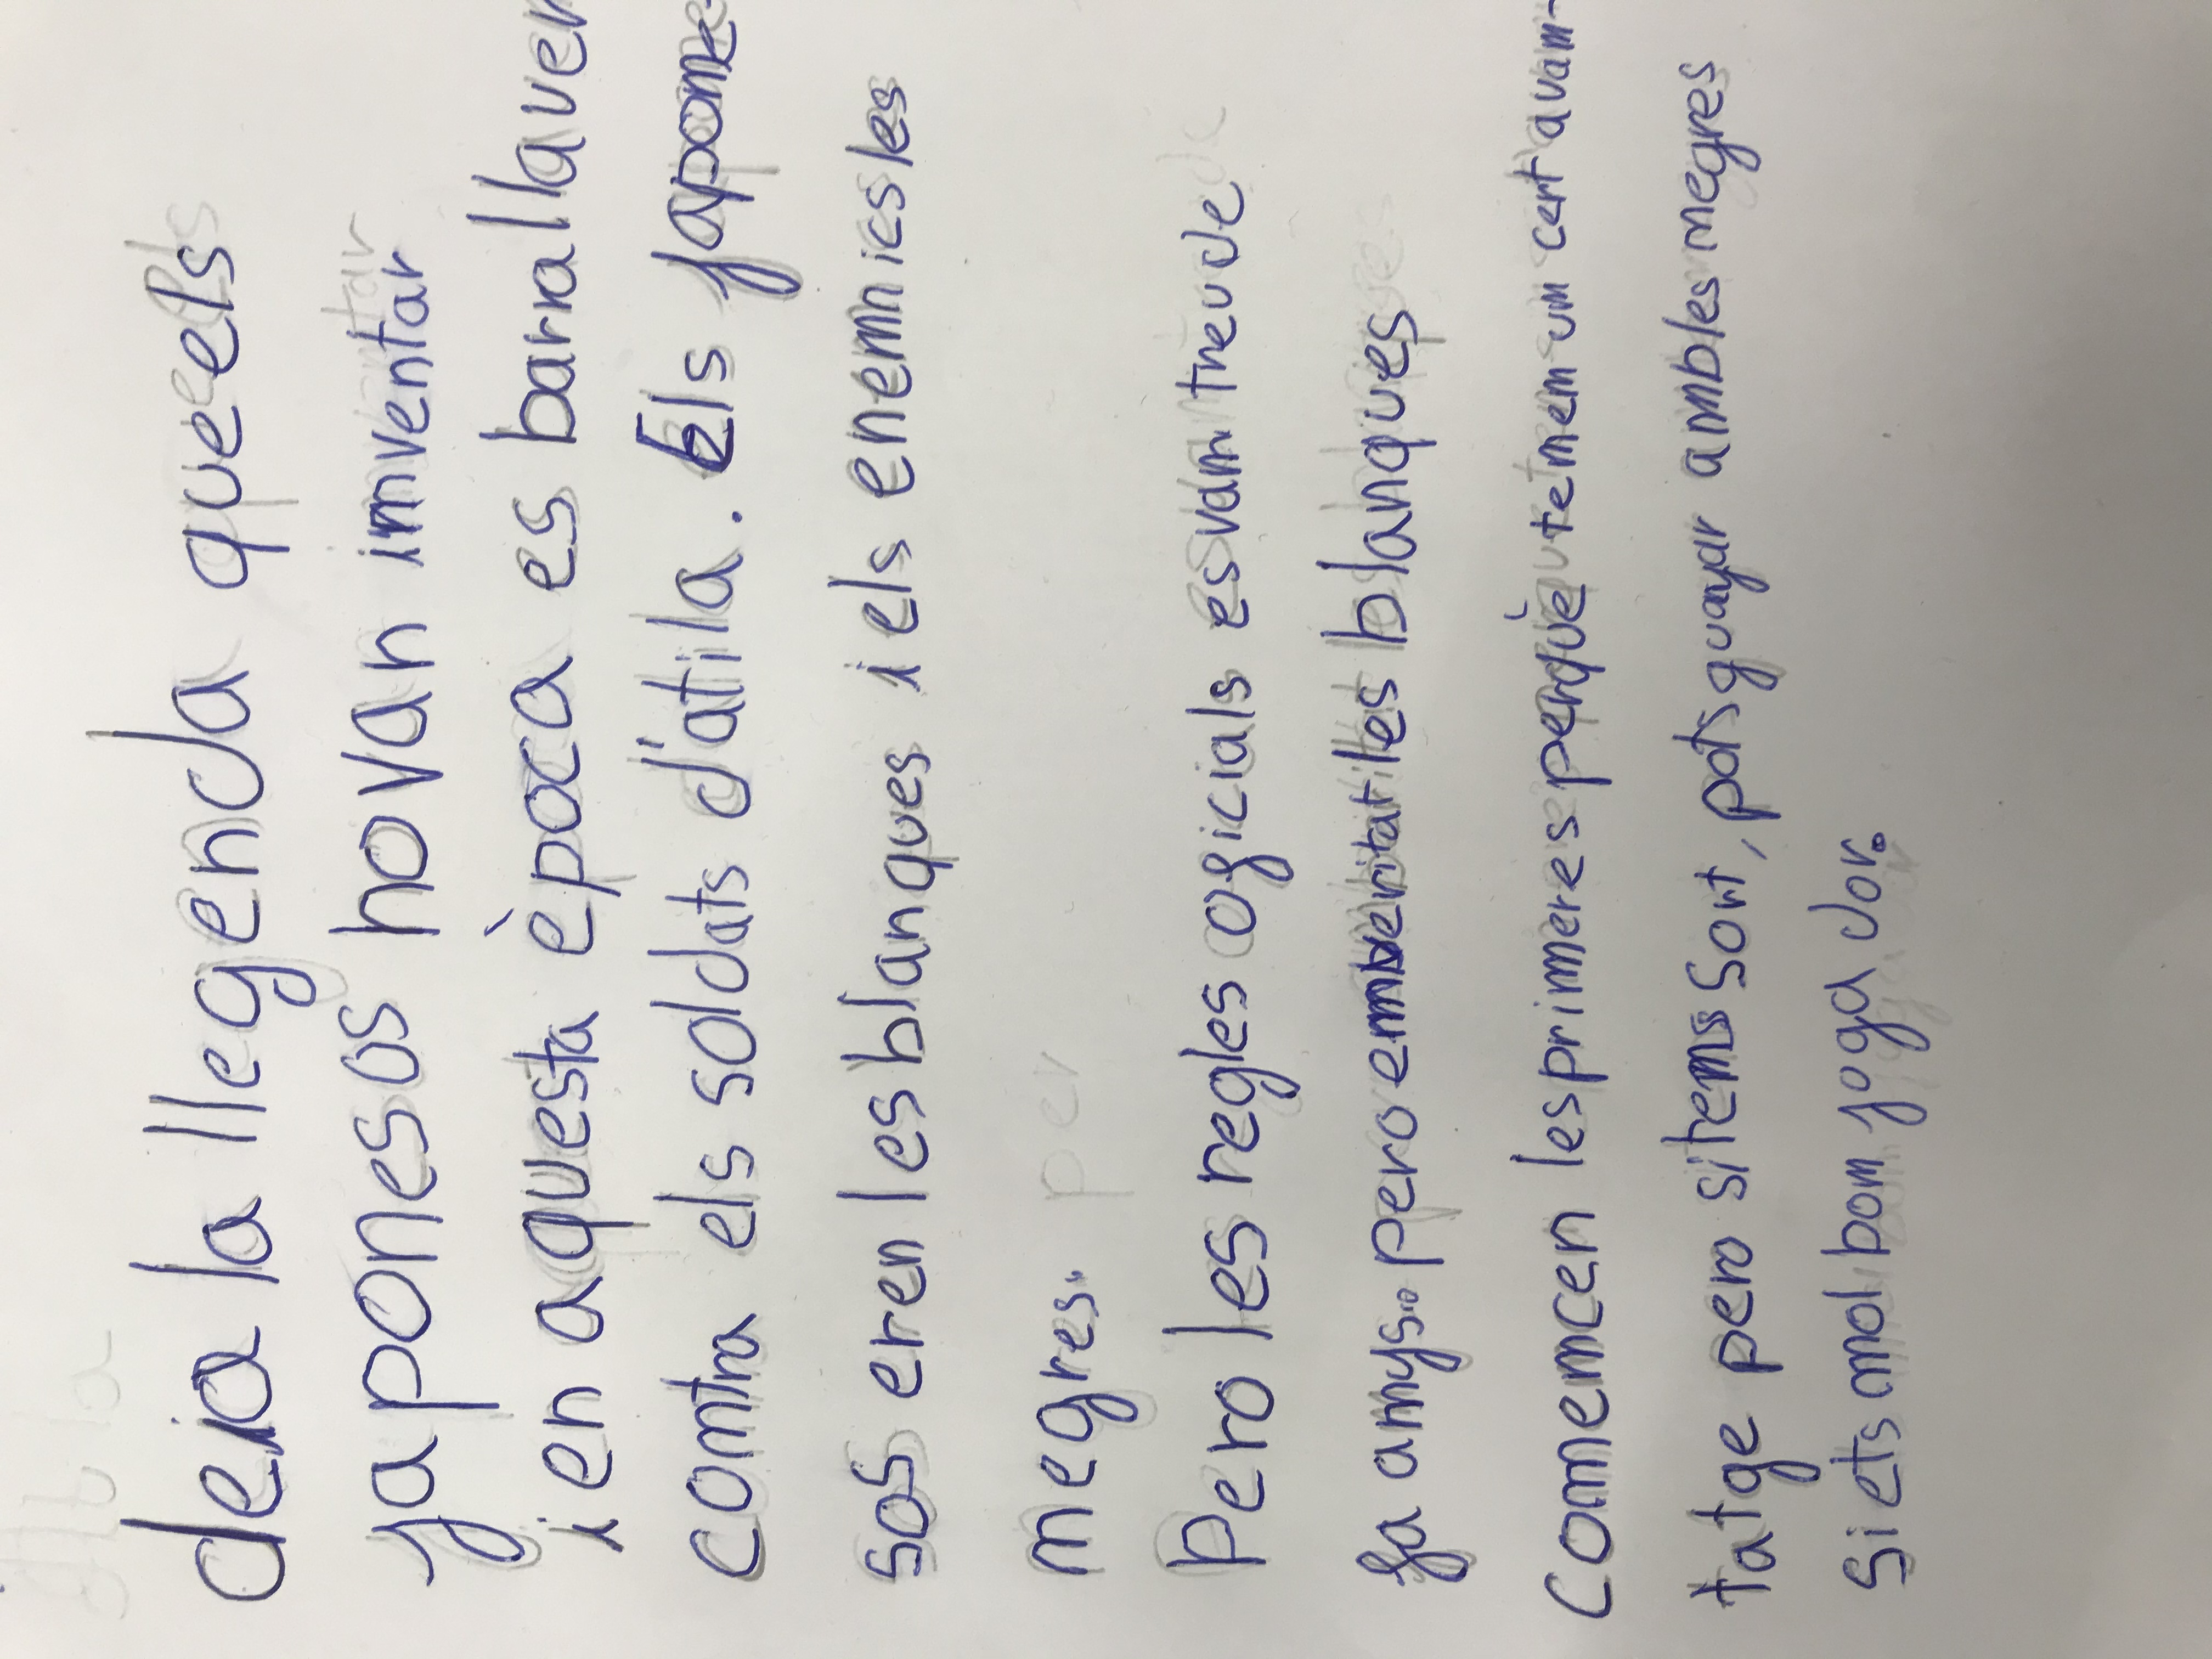 deia la llegenda que els
japonesos ho van inventar
i en aquesta època es barallaven
contra els soldats d'atila. Els japone
sos eren les blanques i els enemics les
negres.
Pero les regles oficials es van treu de
fa anys. pero en veritat i les blanques
comencen les primeres perquè tenen un cert avan-
tatge pero si tens sort, pots guayar amb les negres
si ets mol bon jogador.